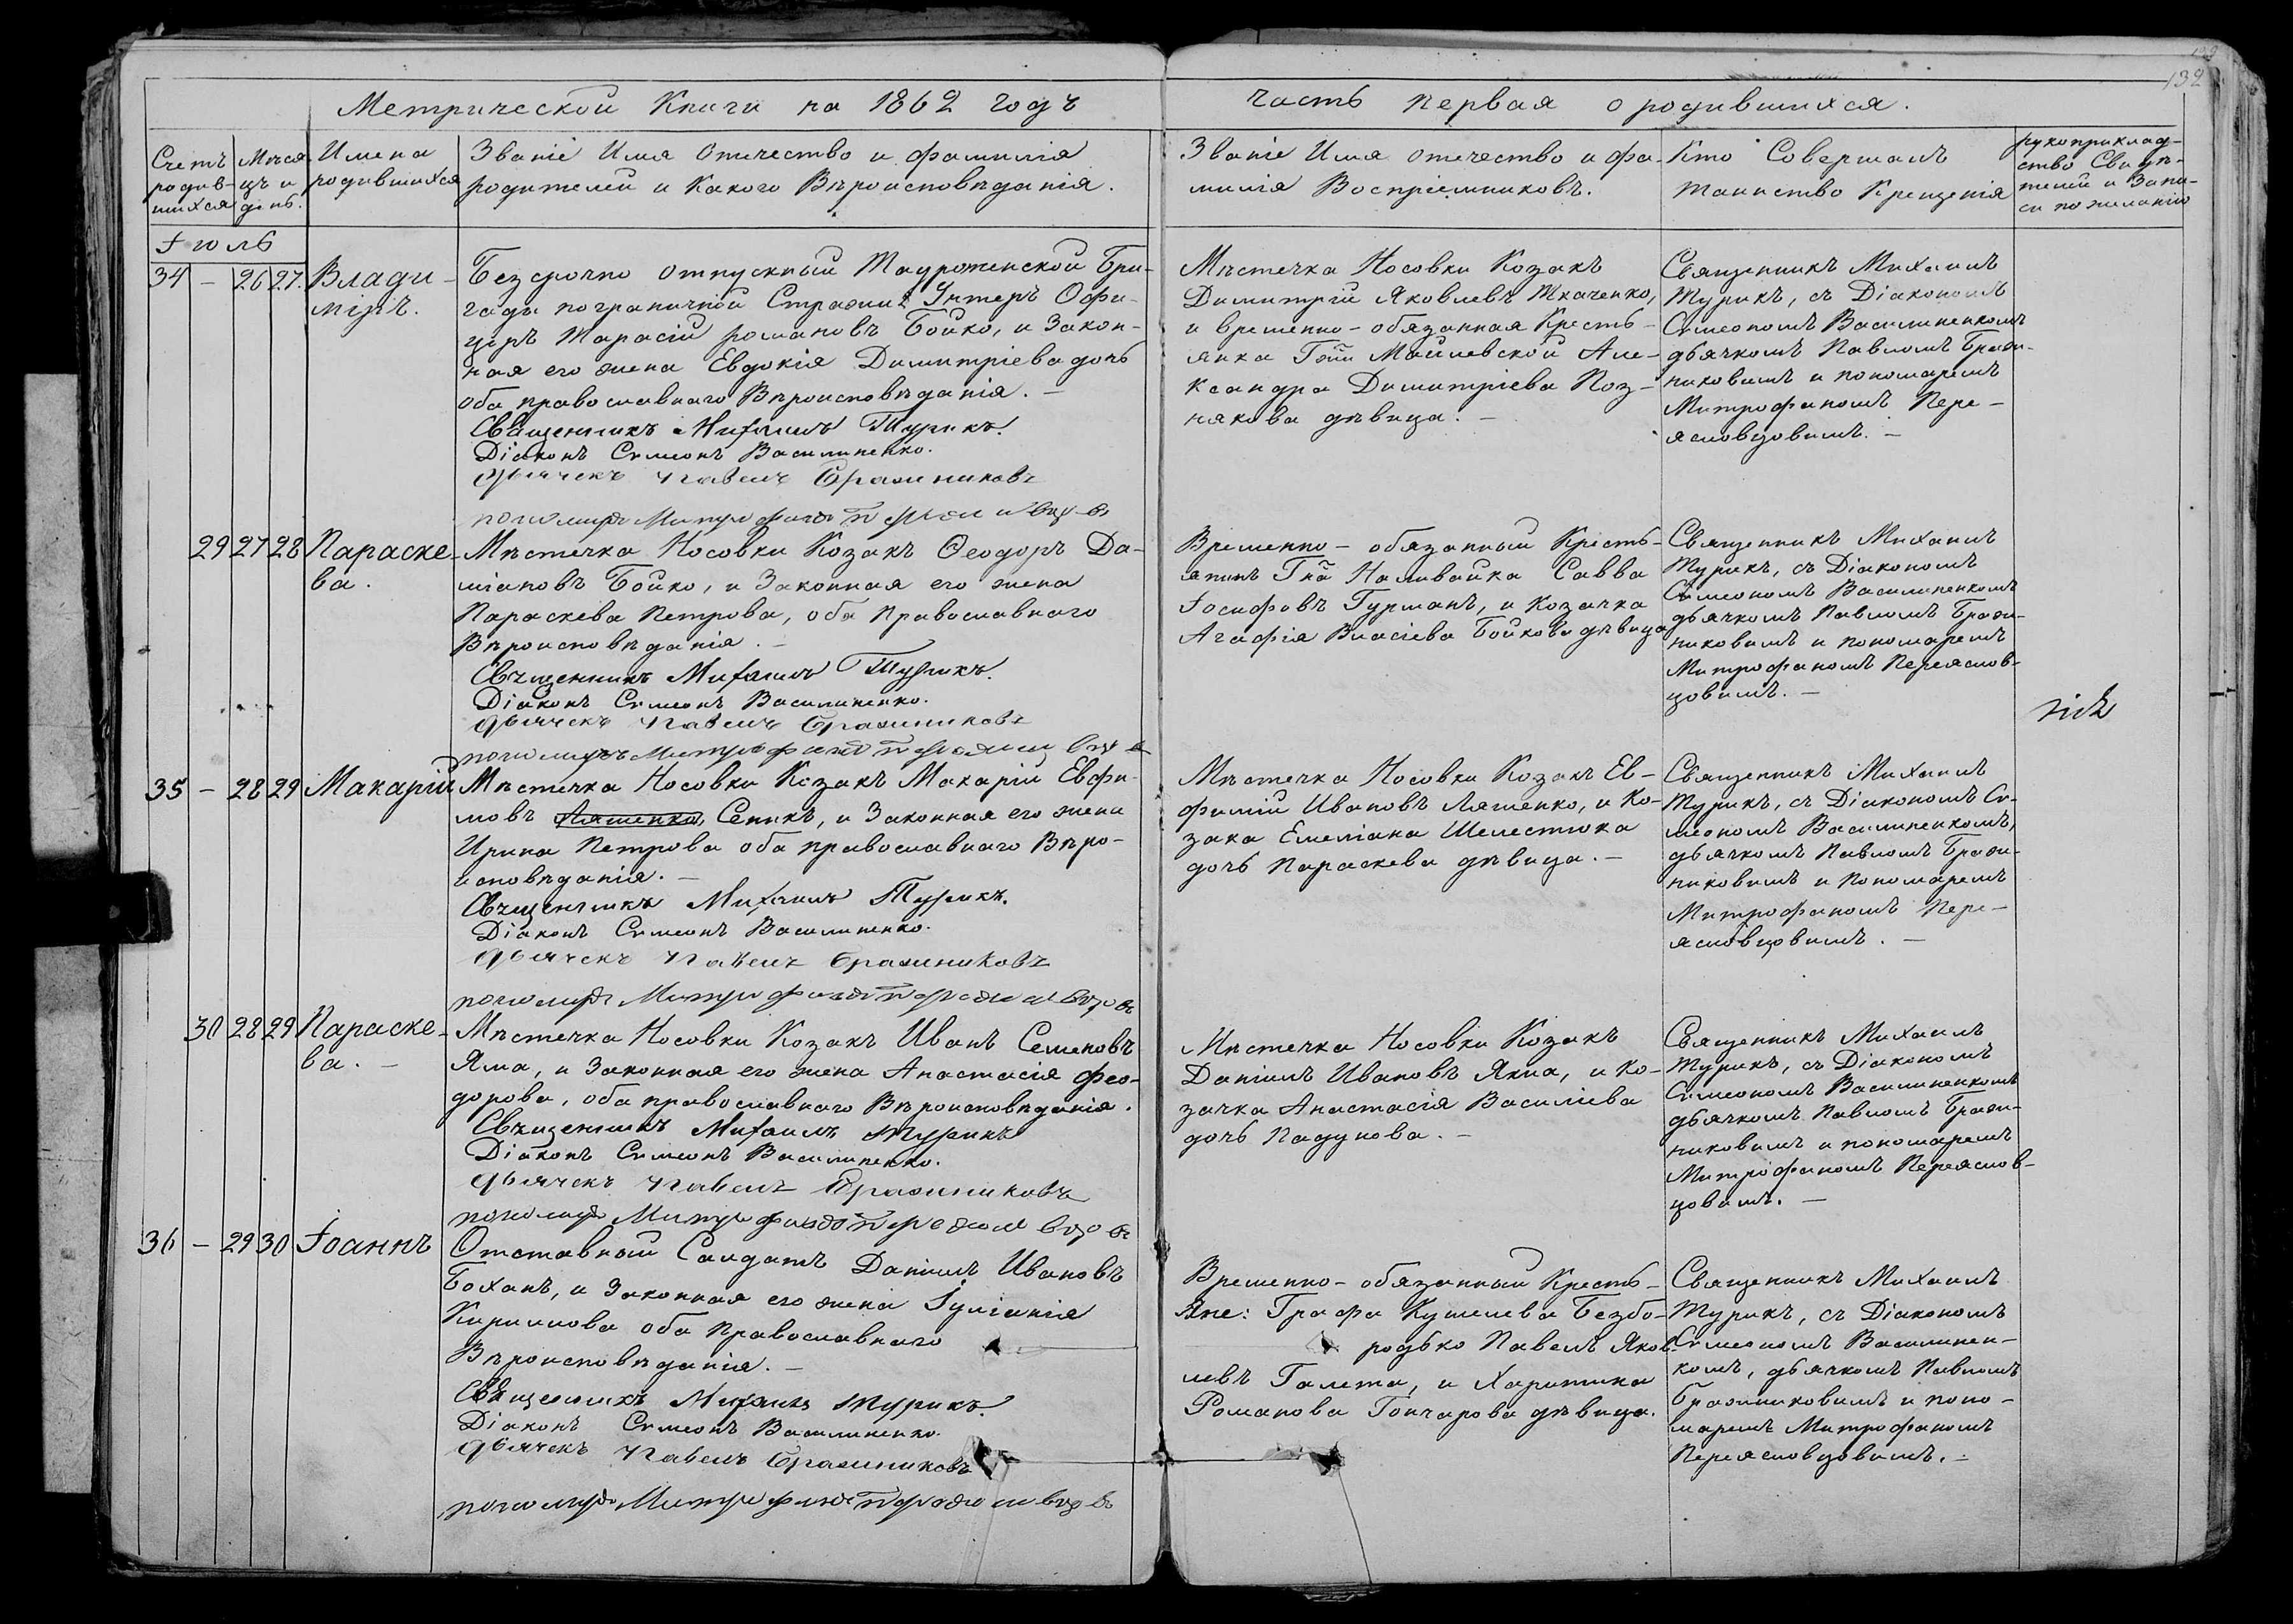 132
Метрической Книги на 1862 годъ
часть первая о родившихся.
Счетъ родив-шихся
Мѣсяцъ и день.
Имена родившихся
Званіе Имя Отчество и фамилія
родителей и Какого Вѣроисповѣданія.
Званіе Имя отечество и фа-
милія Воспріемниковъ.
Кто Совершалъ
таинство Крещенія
рукоприклад-
ство Свидѣ-
телей о Запи-
си по желанію
Іюль
34 – 26 27. Влади-
міръ.
Безсрочно отпускный Таурогенской Бри-
гады пограничной Стражи Унтеръ Офи-
церъ Тарасій романовъ Бойко, и Закон-
ная его жена Евдокія Димитріева дочь
оба православнаго Вѣроисповѣданія. –
Священникъ Михаилъ Турикъ.
Діаконъ Сѵмеонъ Василиненко.
Дьячекъ Павелъ Бражниковъ
пономарь Митрофанъ Переясловцовъ
Мѣстечка Носовки Козакъ
Димитрій Яковлевъ Ткаченко,
и временно-обязанная Кресть-
янка Гжи Маилевской Але-
ксандра Димитріева Поз-
някова дѣвица. –
Священникъ Михаилъ
Турикъ, съ Діакономъ
Сѵмеономъ Василиненкомъ
дьячкомъ Павломъ Бражи-
никовымъ и пономаремъ
Митрофаномъ Пере-
ясловцовымъ. –
29 27 28 Параске-
ва.
Мѣстечка Носовки Козакъ Ѳеодоръ Да-
міановъ Бойко, и Законная его жена
Параскева Петрова, оба Православнаго
Вѣроисповѣданія. –
Священникъ Михаилъ Турикъ.
Діаконъ Сѵмеонъ Василиненко.
Дьячекъ Павелъ Бражниковъ
пономарь Митрофанъ Переясловцовъ
Временно-обязанный Кресть-
янинъ Гна Наливайка Савва
Іосифовъ Гурманъ, и Козачка
Агафія Власіева Бойкова дѣвица
Священникъ Михаилъ
Турикъ, съ Діакономъ
Сѵмеономъ Василиненкомъ
дьячкомъ Павломъ Бражи-
никовымъ и пономаремъ
Митрофаномъ Переяслов-
цовымъ. –
35 – 28 29 Макарій
Мѣстечка Носовки Козакъ Макарій Евфи-
мовъ Ляшенко, Сеникъ, и Законная его жена
Ирина Петрова оба православнаго Вѣро-
исповѣданія. –
Священникъ Михаилъ Турикъ.
Діаконъ Сѵмеонъ Василиненко.
Дьячекъ Павелъ Бражниковъ
пономарь Митрофанъ Переясловцовъ
Мѣстечка Носовки Козакъ Ев-
фимій Ивановъ Ляшенко, и Ко-
зака Емеліана Шелестюка
дочь Параскева дѣвица. –
Священникъ Михаилъ
Турикъ, съ Діакономъ Сѵ-
меономъ Василиненкомъ,
дьячкомъ Павломъ Бражи-
никовымъ и Пономаремъ
Митрофаномъ Пере-
ясловцовымъ. –
30 28 29 Параске-
ва. –
Мѣстечка Носовки Козакъ Иванъ Семеновъ
Яма, и Законная его жена Анастасія Фео-
дорова, оба православнаго Вѣроисповѣданія.
Священникъ Михаилъ Турикъ
Діаконъ Сѵмеонъ Василиненко.
Дьячекъ Павелъ Бражниковъ
пономарь Митрофанъ Переясловцовъ
Мѣстечка Носовки Козакъ
Даніилъ Ивановъ Яма, и Ко-
зачка Анастасія Василіева
дочь Падунова. –
Священникъ Михаилъ
Турикъ, съ Діакономъ
Сѵмеономъ Василиненкомъ
дьячкомъ Павломъ Бражи-
никовымъ и пономаремъ
Митрофаномъ Переяслов-
цовымъ. –
36 – 29 30 Іоаннъ
Отставный Салдатъ Даніилъ Ивановъ
Боханъ, и Законная его жена Іуліанія
Кирилова оба Православнаго
Вѣроисповѣданія. –
Священникъ Михаилъ Турикъ.
Діаконъ Сѵмеонъ Василиненко.
Дьячекъ Павелъ Бражниковъ
пономарь Митрофанъ Переясловцовъ
Временно-обязанный Кресть-
яне: Графа Кушелева Безбо-
родько Павелъ Яков-
левъ Галета, и Харитина
Романова Гончарова дѣвица.
Священникъ Михаилъ
Турикъ, съ Діакономъ
Сѵмеономъ Василинен-
комъ, дьячкомъ Павломъ
Бражниковымъ и поно-
маремъ Митрофаномъ
Переясловцовымъ. –